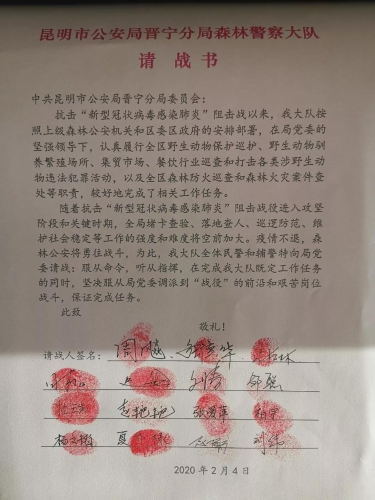 昆明市公安局晋宁分局森林警察大队
请 战 书
中共昆明市公安局晋宁分局委员会：
抗击“新型冠状病毒感染肺炎”阻击战以来，我大队按
照上级森林公安机关和区委区政府的安排部署，在局党委的
坚强领导下，认真履行全区野生动物保护巡护、野生动物驯
养繁殖场所、集贸市场、餐饮行业巡查和打击各类涉野生动
物违法犯罪活动，以及全区森林防火巡查和森林火灾案件查
处等职责，较好地完成了相关工作任务。
随着抗击“新型冠状病毒感染肺炎”阻击战役进入攻坚
阶段和关键时期，全局堵卡查验、落地查人、巡逻防范、维
护社会稳定等工作的强度和难度将空前加大。疫情不退，森
林公安将勇往战斗，为此，我大队全体民警和辅警特向局党
委请战：服从命令，听从指挥，在完成我大队既定工作任务
的同时，坚决服从局党委调派到“战役”的前沿和艰苦岗位
战斗，保证完成任务。
此致
敬礼！
请战人签名：
2020 年 2 月 4 日